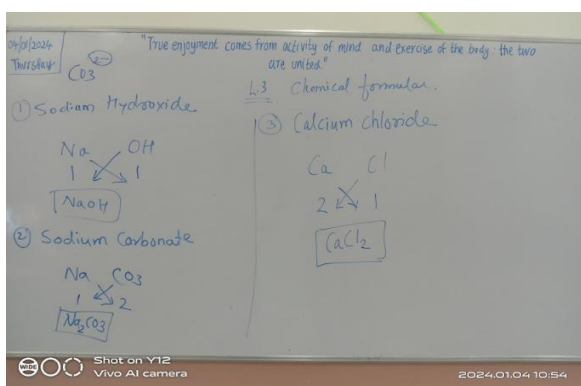 04/01/2024
Thursday
"True enjoyment comes from activity of mind and exercise of the body : the two
are united"
CO3 2-
L.3 Chemical formulae.
① Sodium Hydroxide
Na OH
1 1
NaOH
② Sodium Carbonate
Na CO3
1 2
Na2CO3
③ Calcium chloride
Ca Cl
2 1
CaCl2
WIDE
Shot on Y12
Vivo AI camera
2024.01.04 10:54